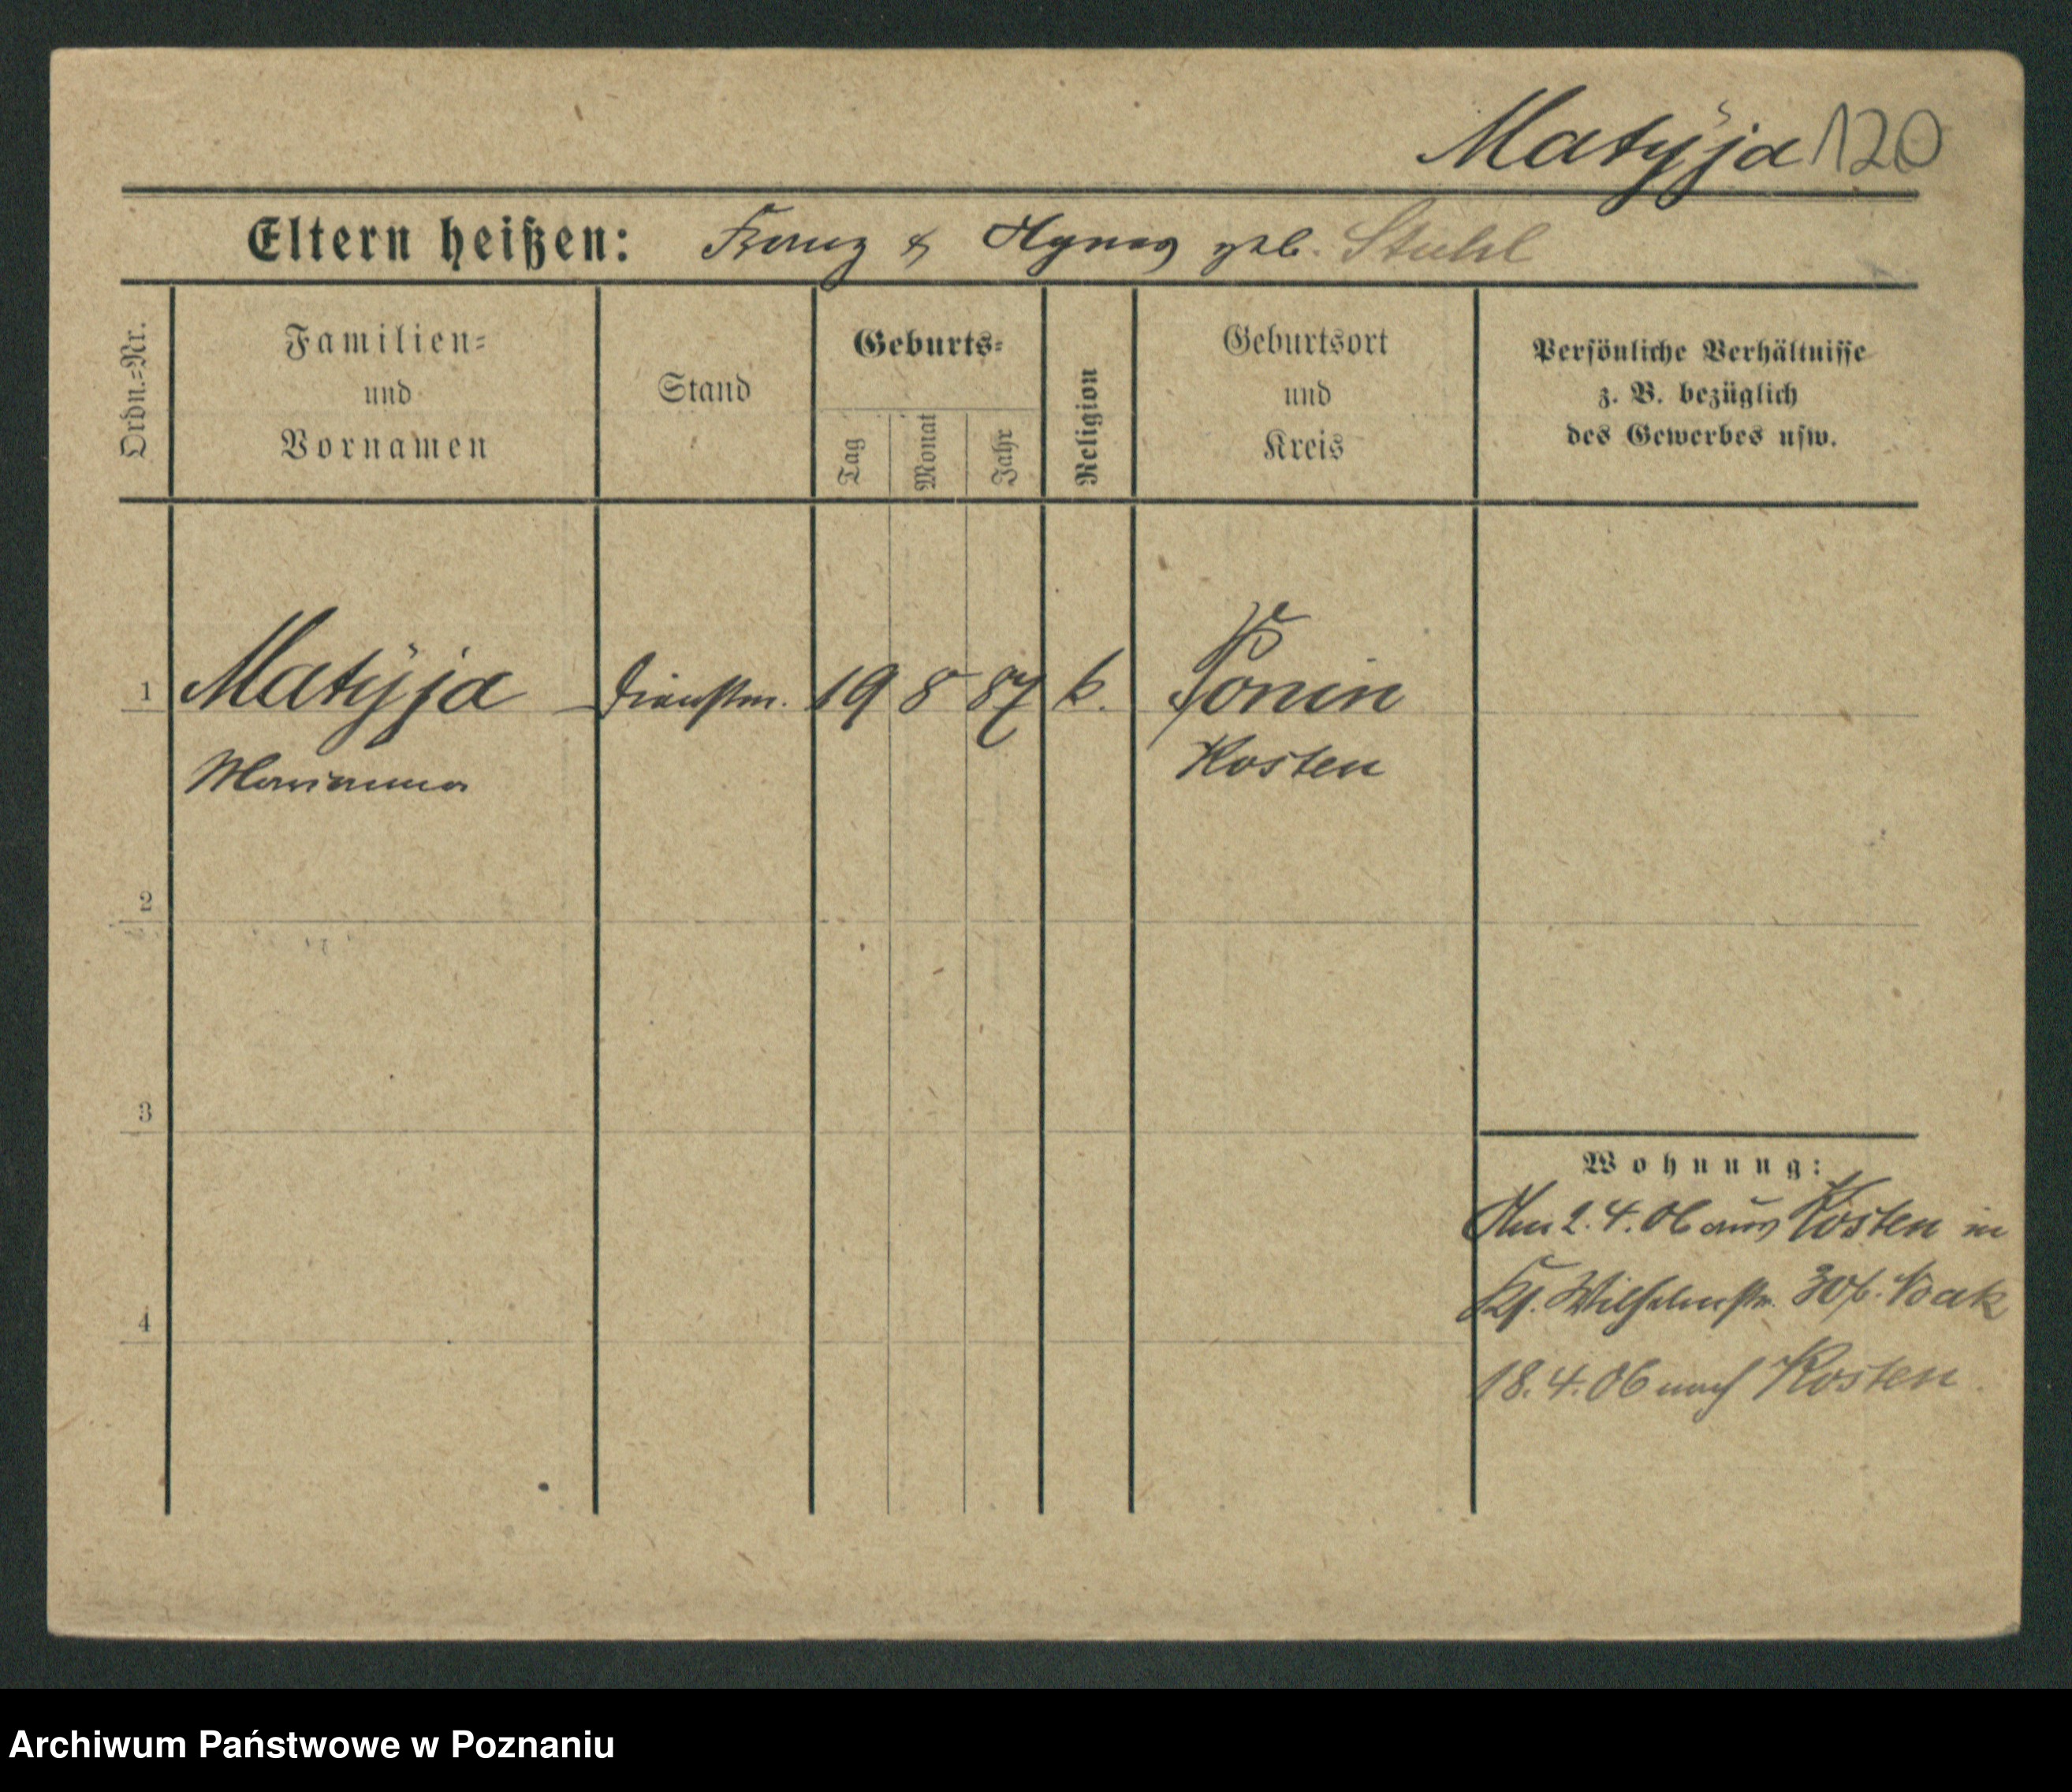 Matyja 120
Eltern heißen: Franz & Agnes geb. Stuhl
Ordn.-Nr.
Familien-
und
Vornamen
Stand
Geburts-
Tag
Monat
Jahr
Religion
Geburtsort
und
Kreis
Persönliche Verhältnisse
z. B. bezüglich
des Gewerbes usw.
1 Matyja Dienstm. 19 8 87 k. Ponin
Marianna Kosten
2
3
4
Wohnung:
Am 2.4.06 aus Kosten in
Wilhelmstr. 30 b. Noak
18.4.06 nach Kosten
Archiwum Państwowe w Poznaniu